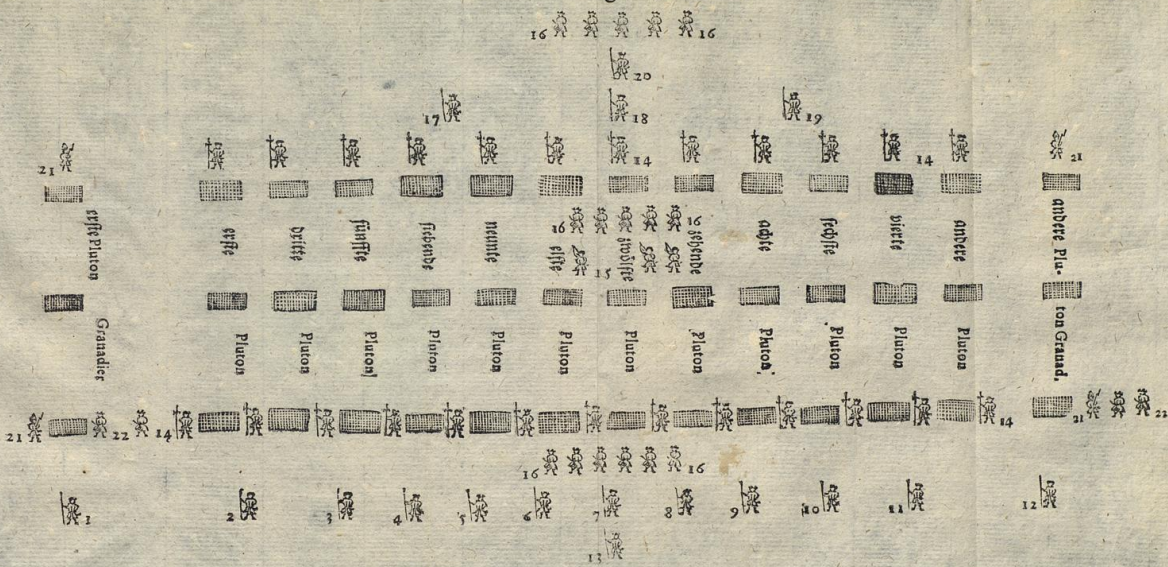 16 16
20
17 18 19
21 14 14 21
erste Pluton Granadier
erste Pluton
dritte Pluton
fünffte Pluton
siebende Pluton
neunte Pluton
eilfte Pluton
16 16
15
zwölffte Pluton
zehende Pluton
achte Pluton
sechste Pluton
vierte Pluton
andere Pluton
andere Plu-
ton Granad.
21 22 14 14 21 22
16 16
1 2 3 4 5 6 7 8 9 10 11 12
13